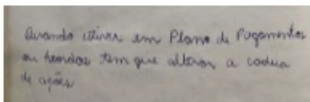 Quando estiver em Plano de Pagamentos
ou herdos tem que alterar a cadeia
de ações